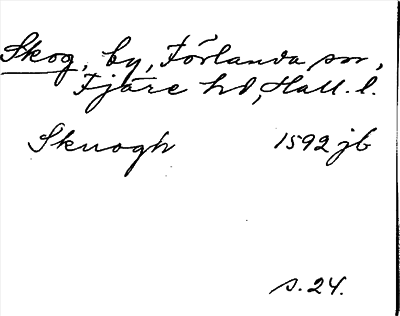 Skog, by, Förlanda sn,
Fjäre hd, Hall. l.
Skuogh 1592 jb
s. 24.